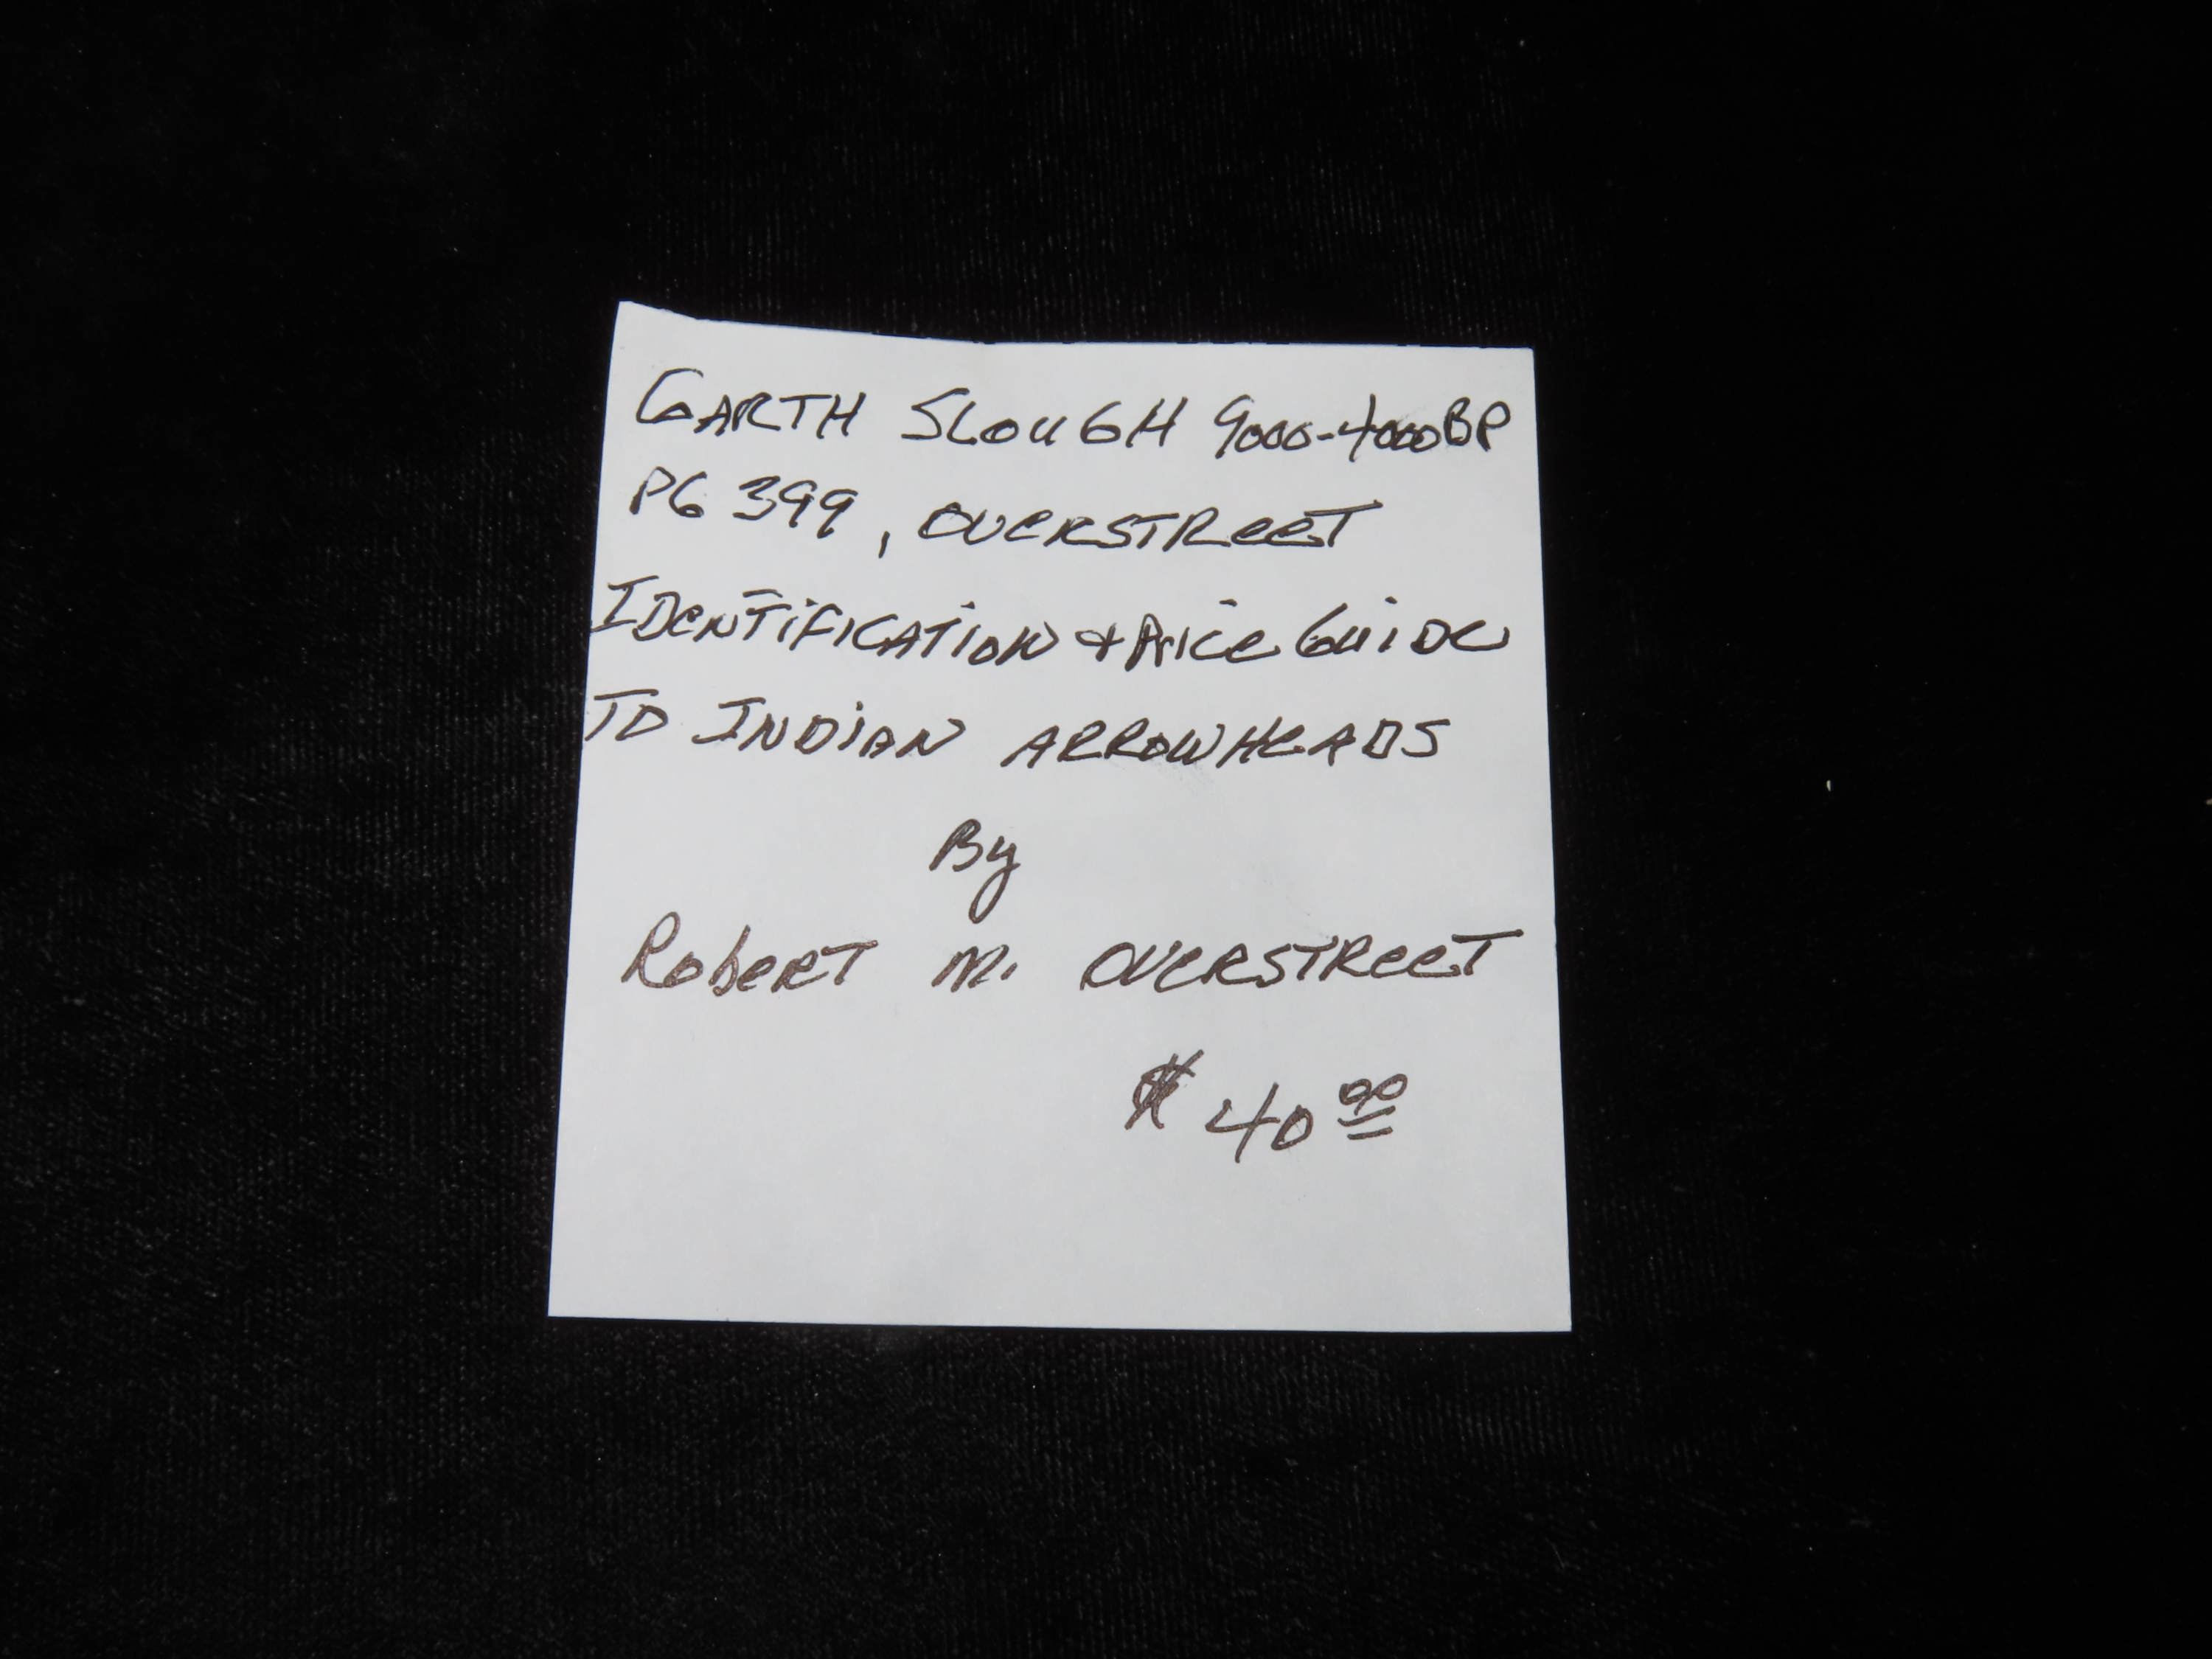 GARTH SLOUGH 9000-4000BP
PG 399, OVERSTREET
IDENTIFICATION + PRICE GUIDE
TO INDIAN ARROWHEADS
By
ROBERT M. OVERSTREET
$ 40 00